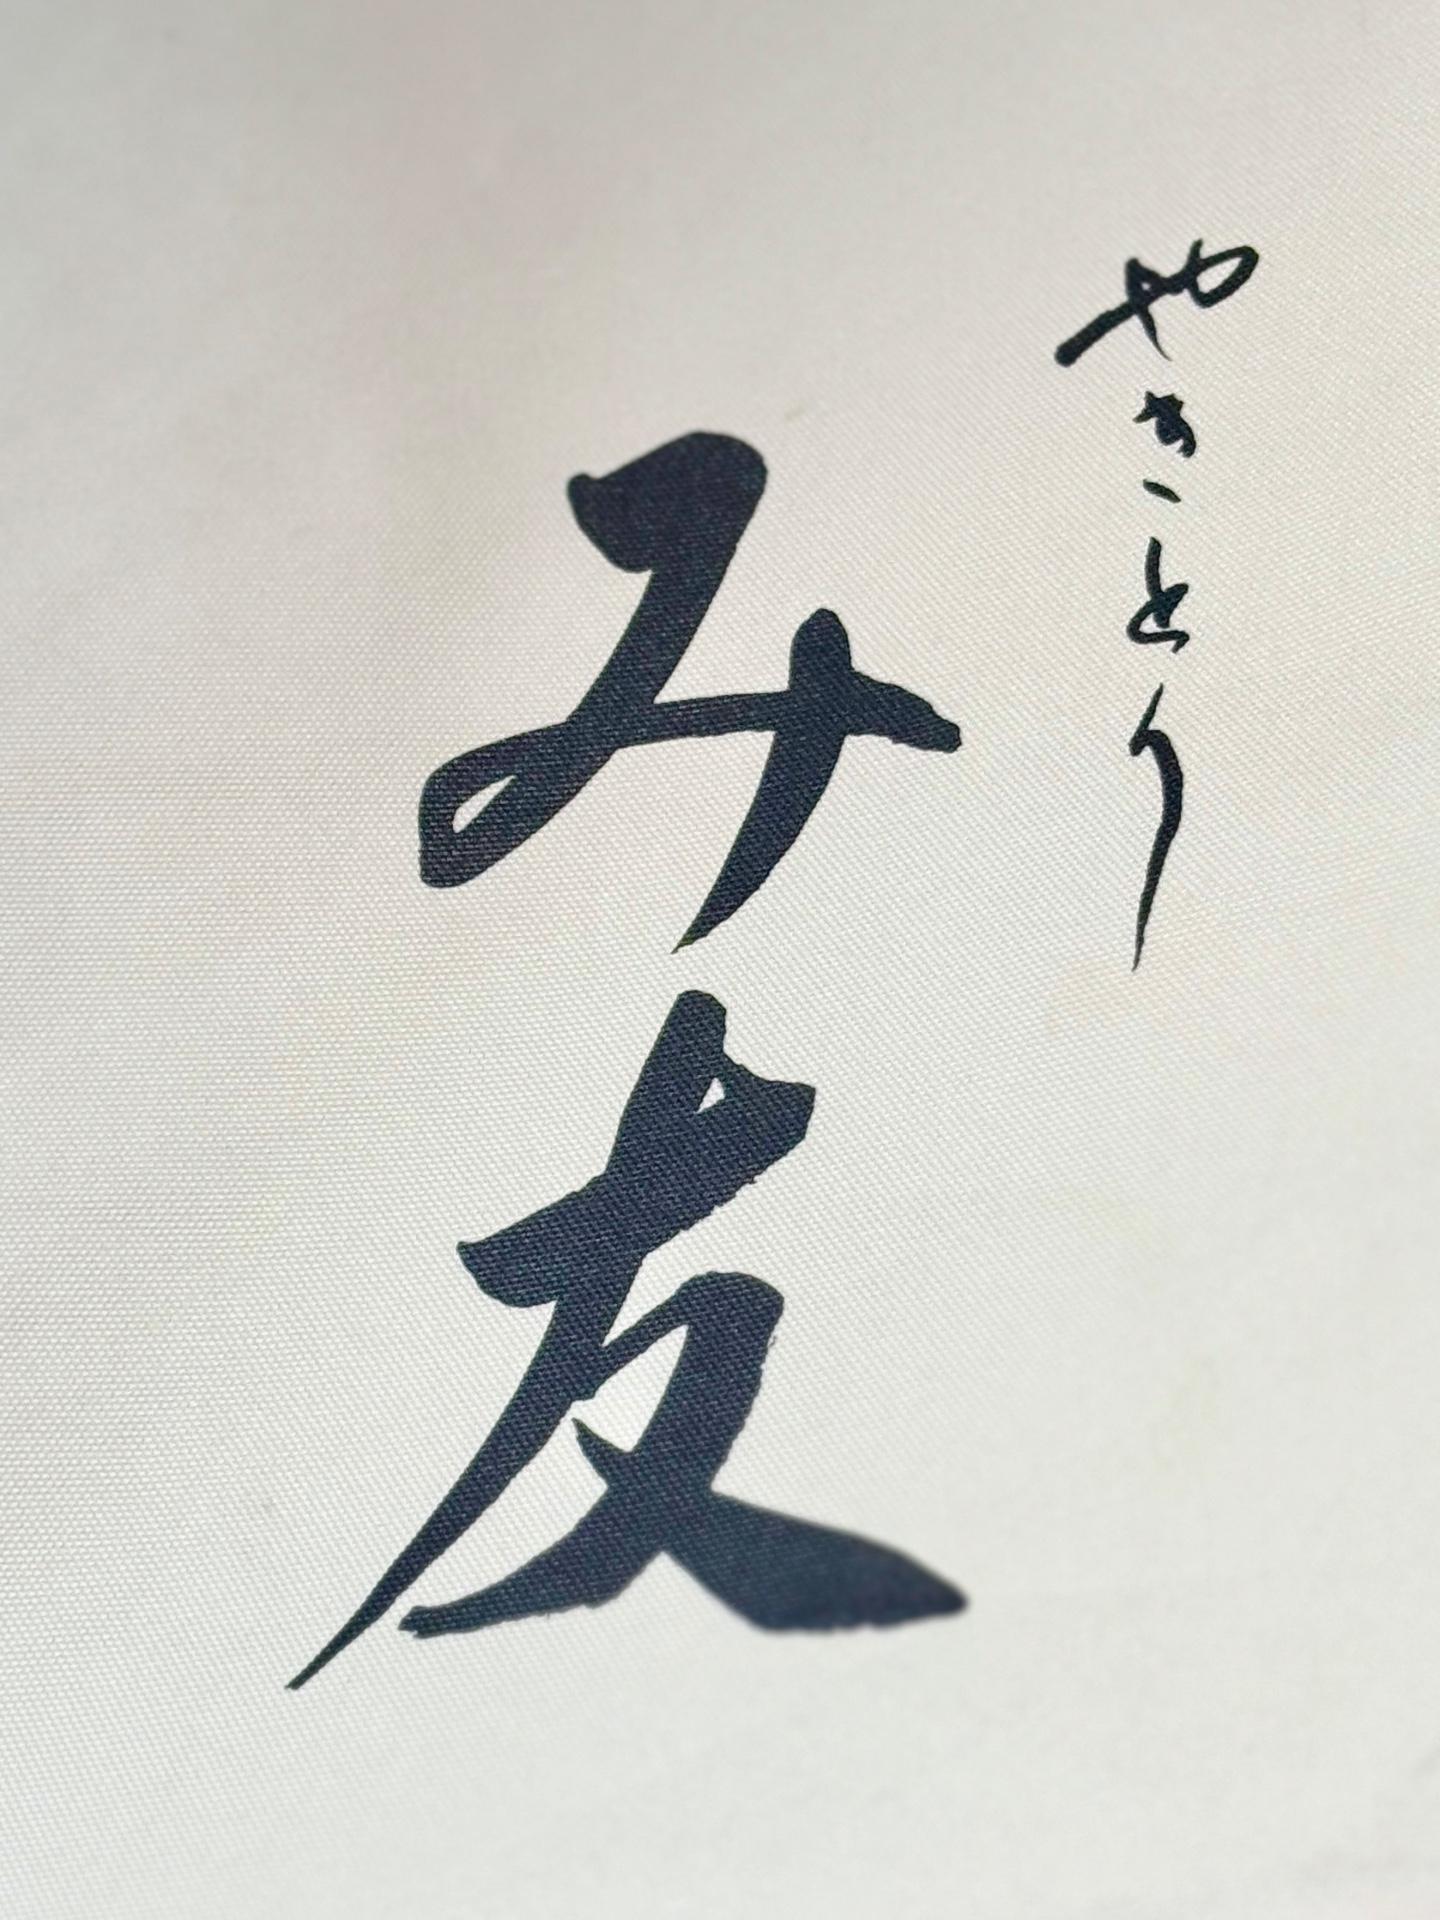 やきとり
み友